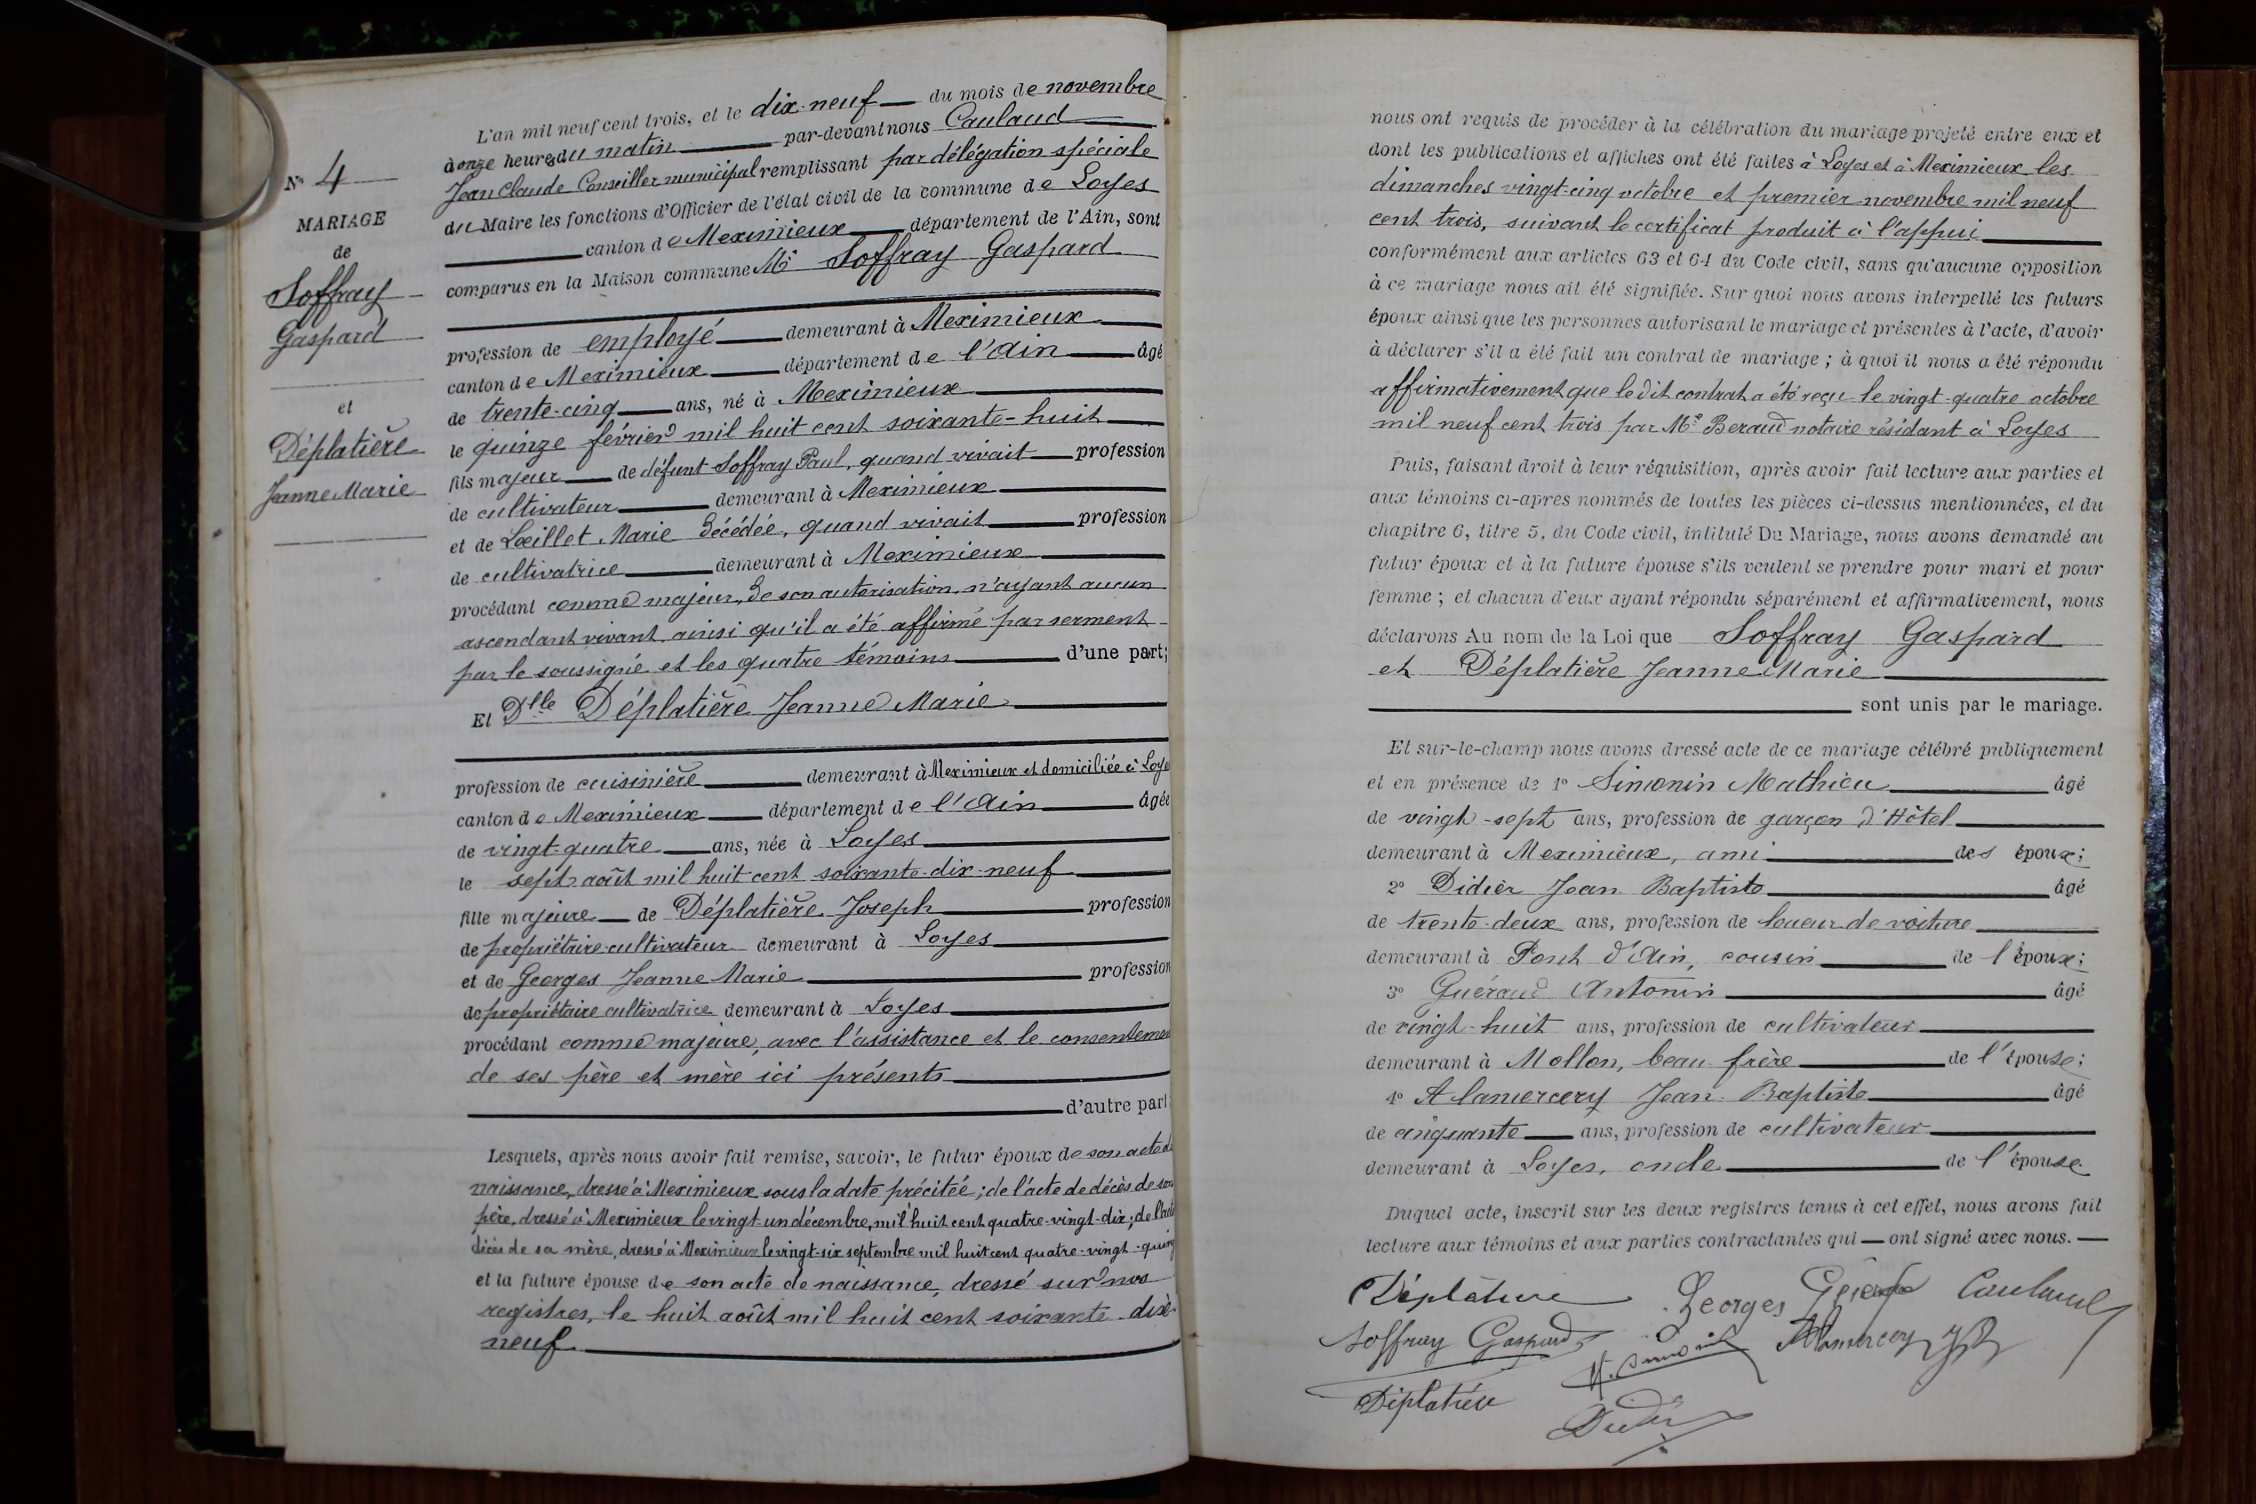 N° 4
MARIAGE
de
Soffray
Gaspard
et
Déplatière
Jeanne Marie
L'an mil neuf cent trois, et le dix-neuf du mois de novembre
à onze heures du matin par-devant nous Caulaud
Jean Claude Conseiller municipal remplissant par délégation spéciale
du Maire les fonctions d'Officier de l'état civil de la commune de Loyes
canton de Meximieux département de l'Ain, sont
comparus en la Maison commune Mr Soffray Gaspard
profession de employé demeurant à Meximieux
canton de Meximieux département de l'Ain âgé
de trente-cinq ans, né à Meximieux
le quinze février mil huit cent soixante-huit
fils majeur de défunt Soffray Paul, quand vivait profession
de cultivateur demeurant à Meximieux
et de Loeillet Marie décédée, quand vivait profession
de cultivatrice demeurant à Meximieux
procédant comme majeur, de son autorisation, n'ayant aucun
ascendant vivant ainsi qu'il a été affirmé par serment
par le soussigné et les quatre témoins d'une part;
Et Dlle Déplatière Jeanne Marie
profession de cuisinière demeurant à Meximieux et domiciliée à Loye
canton de Meximieux département de l'Ain âgée
de vingt-quatre ans, née à Loyes
le sept août mil huit cent soixante-dix-neuf
fille majeure de Déplatière Joseph profession
de propriétaire-cultivateur demeurant à Loyes
et de Georges Jeanne Marie profession
de propriétaire cultivatrice demeurant à Loyes
procédant comme majeure, avec l'assistance et le consentemen
de ses père et mère ici présents
d'autre part
Lesquels, après nous avoir fait remise, savoir, le futur époux de son acte de
naissance, dressé à Meximieux sous la date précitée; de l'acte de décès de son
père, dressé à Meximieux le vingt-un décembre, mil huit cent quatre-vingt-dix; de l'acte
décès de sa mère, dressé à Meximieux le vingt-six septembre mil huit cent quatre-vingt-quinz
et la future épouse de son acte de naissance, dressé sur nos
registres, le huit août mil huit cent soixante-dix-
neuf.
nous ont requis de procéder à la célébration du mariage projeté entre eux et
dont les publications et affiches ont été faites à Loyes et à Meximieux les
dimanches vingt-cinq octobre et premier novembre mil neuf
cent trois, suivant le certificat produit à l'appui
conformément aux articles 63 et 64 du Code civil, sans qu'aucune opposition
à ce mariage nous ait été signifiée. Sur quoi nous avons interpellé les futurs
époux ainsi que les personnes autorisant le mariage et présentes à l'acte, d'avoir
à déclarer s'il a été fait un contrat de mariage; à quoi il nous a été répondu
affirmativement que le dit contrat a été reçu le vingt-quatre octobre
mil neuf cent trois par Me Beraud notaire résidant à Loyes
Puis, faisant droit à leur réquisition, après avoir fait lecture aux parties et
aux témoins ci-après nommés de toutes les pièces ci-dessus mentionnées, et du
chapitre 6, titre 5, du Code civil, intitulé Du Mariage, nous avons demandé au
futur époux et à la future épouse s'ils veulent se prendre pour mari et pour
femme; et chacun d'eux ayant répondu séparément et affirmativement, nous
déclarons Au nom de la Loi que Soffray Gaspard
et Déplatière Jeanne Marie
sont unis par le mariage.
Et sur-le-champ nous avons dressé acte de ce mariage célébré publiquement
et en présence de 1° Simonin Mathieu âgé
de vingt-sept ans, profession de garçon d'Hôtel
demeurant à Meximieux, ami des époux;
2° Didier Jean Baptiste âgé
de trente-deux ans, profession de loueur de voiture
demeurant à Pont d'Ain, cousin de l'époux;
3° Guéraud Antonin âgé
de vingt-huit ans, profession de cultivateur
demeurant à Mollon, beau-frère de l'épouse;
4° Alamercery Jean-Baptiste âgé
de cinquante ans, profession de cultivateur
demeurant à Loyes, oncle de l'épouse
Duquel acte, inscrit sur les deux registres tenus à cet effet, nous avons fait
lecture aux témoins et aux parties contractantes qui ont signé avec nous.
Déplatière Georges Caulaud
Soffray Gaspard M. Simonin Alamercery J B
Déplatière Didier